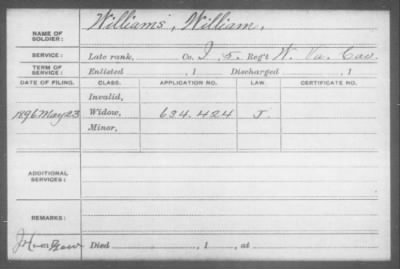 NAME OF SOLDIER: Williams, William,
SERVICE: Late rank, Co. I, 5. Reg't W. Va. Cav
TERM OF SERVICE: Enlisted , 1 Discharged , 1
DATE OF FILING. CLASS. APPLICATION NO. LAW. CERTIFICATE NO.
Invalid,
1896 May 23 Widow, 634.424 J.
Minor,
ADDITIONAL SERVICES:
REMARKS:
Died , 1 , at